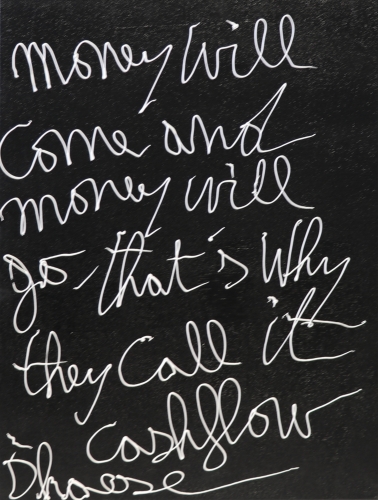 money will
come and
money will
go - that's why
they call it
cashflow